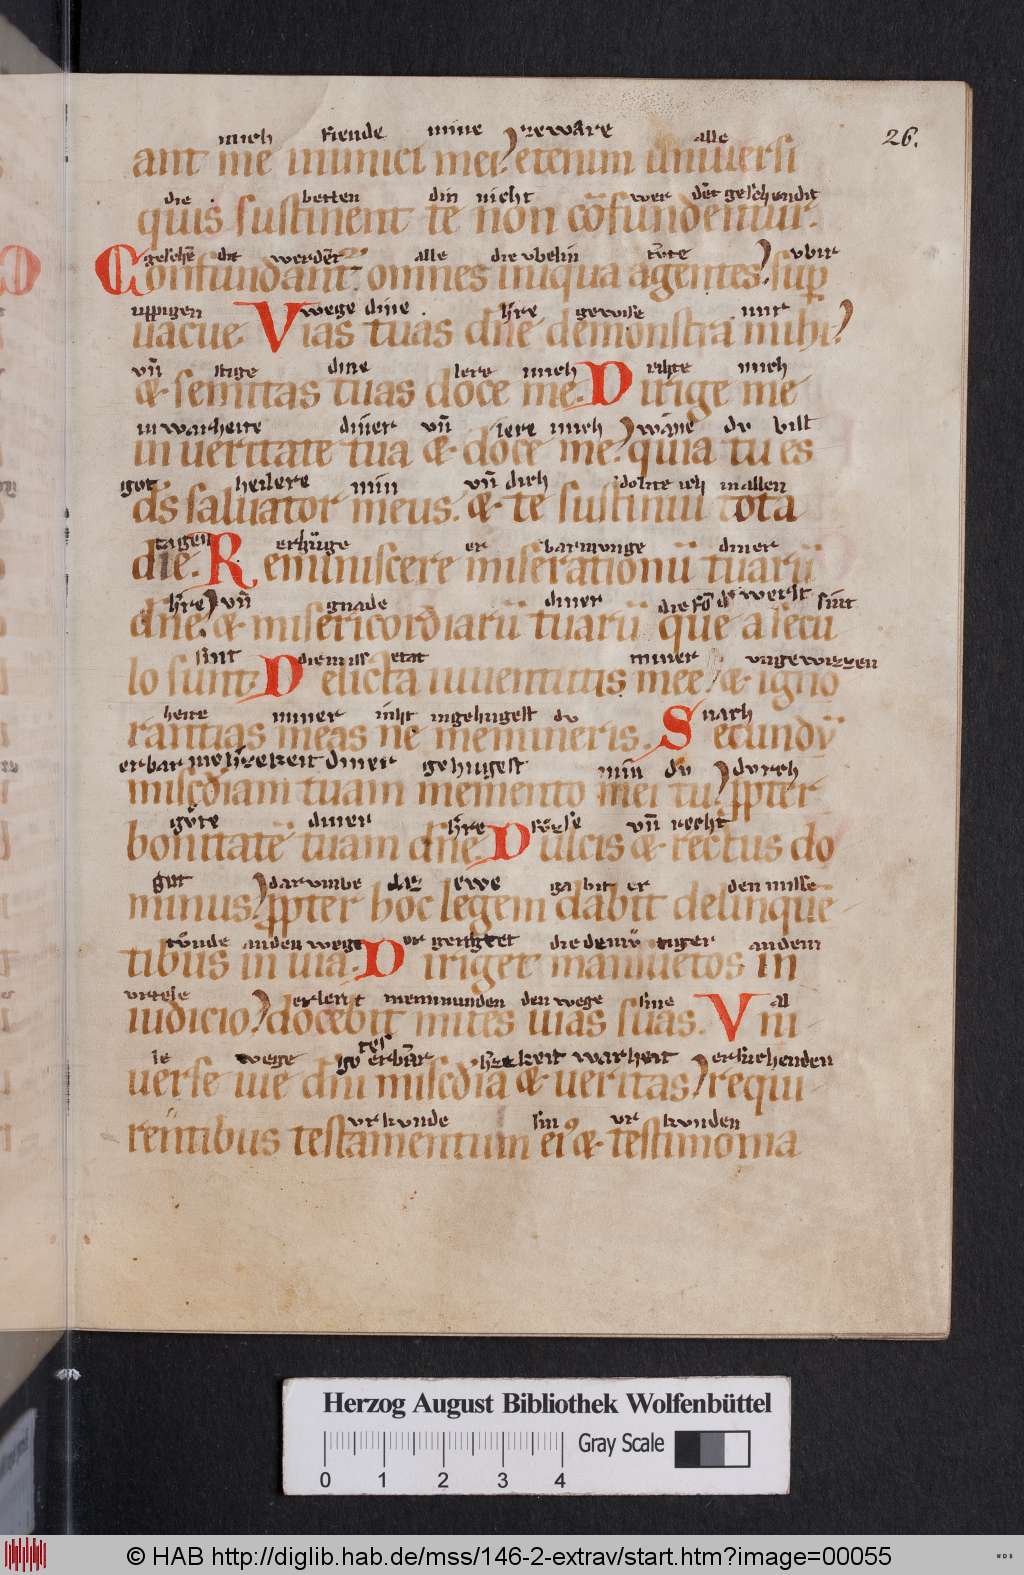 26.
mich fiende mine zeware alle
ant me inimici mei? etenim uniuersi
die betten din nicht wer dēt geschendit
quis sustinent te non cōfundentur.
geschēdit werdēt alle die vbelin tv̊te vbir
Confundant᷑ omnes iniqua agentes? sup̄
uppigen wege dine h̄re gewisse mir
uacue Vias tuas dn̄e demonstra mihi?
vn̄ stige dine lere mich rihte mich
& semitas tuas doce me. Dirige me
in warheite diner vn̄ lere mich wāne du bist
in ueritate tua & doce me? quia tu es
got heilere min vn̄ dich dolite ich in allen
ds̄ saluator meus. & te sustinui tota
tagen erhüge er barmunge diner
die. Reminiscere miserationū tuarū
h̄re vn̄ gnade diner die fō d werlt sint
dn̄e? & misericordiarū tuarū que a secu
sint die miss etat miner vngewizzen
lo sunt. Delicta iuuentutis mee? & igno
heite miner niht ingehugest du nach
rantias meas ne memineris. Secundū
erbarmeh̄zekeit diner gehugest min du durch
misc̄diam tuam memento mei tu? ꝓpter
gv̊te diner h̄re sv̊zse vn̄ recht
bonitatē tuam dn̄e Dulcis & rectus do
got darumbe daz ewe gabit er den misse
minus? ꝓpter hoc legem dabit delinquē
tv̊nde an den wege er gerihtet die demv̊ tiger an dem
tibus in uia. Diriget mansuetos in
vrteile erleret memmunden den wege sine al
iudicio? docebit mites uias suas. Vni
le wege gotes erbār h̄zekeit warheit ersuchenden
uerse uie dn̄i misc̄dia & ueritas? requi
vrkunde sin vrkunden
rentibus testamentum ei᷒ & testimonia
Herzog August Bibliothek Wolfenbüttel
Gray Scale
0 1 2 3 4
© HAB http://diglib.hab.de/mss/146-2-extrav/start.htm?image=00055